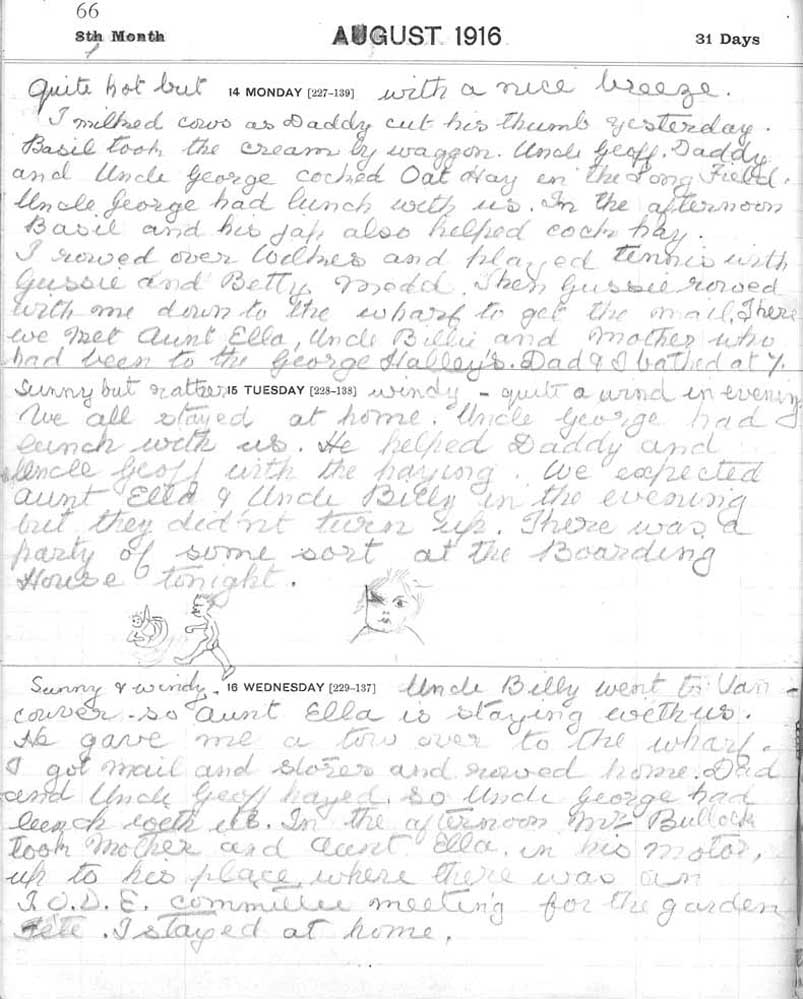 66
8th Month AUGUST 1916 31 Days
Quite hot but 14 MONDAY [227-139] with a nice breeze.
I milked cows as Daddy cut his thumb yesterday.
Basil took the cream by waggon. Uncle Geoff, Daddy
and Uncle George cocked Oat Hay in the Long Field.
Uncle George had lunch with us. In the afternoon
Basil and his Jap also helped cock hay.
I rowed over and played tennis with
Gussie and Betty. Then Gussie rowed
with me down to the wharf to get the mail. There
we met Aunt Ella, Uncle Billie and Mother who
had been to the George Halley's. Dad & I bathed at 7.
Sunny but rather 15 TUESDAY [228-138] windy - quite a wind in evening
We all stayed at home. Uncle George had
lunch with us. He helped Daddy and
Uncle Geoff with the haying. We expected
Aunt Ella & Uncle Billy in the evening
but they did'nt turn up. There was a
party of some sort at the Boarding
House tonight.
Sunny & windy. 16 WEDNESDAY [229-137] Uncle Billy went to Van-
couver - so Aunt Ella is staying with us.
He gave me a tow over to the wharf.
I got mail and stores and rowed home. Dad
and Uncle Geoff hayed, so Uncle George had
lunch with us. In the afternoon Mr Bullock
took Mother and Aunt Ella, in his motor,
up to his place, where there was an
I.O.D.E. committee meeting for the garden
Fête. I stayed at home.